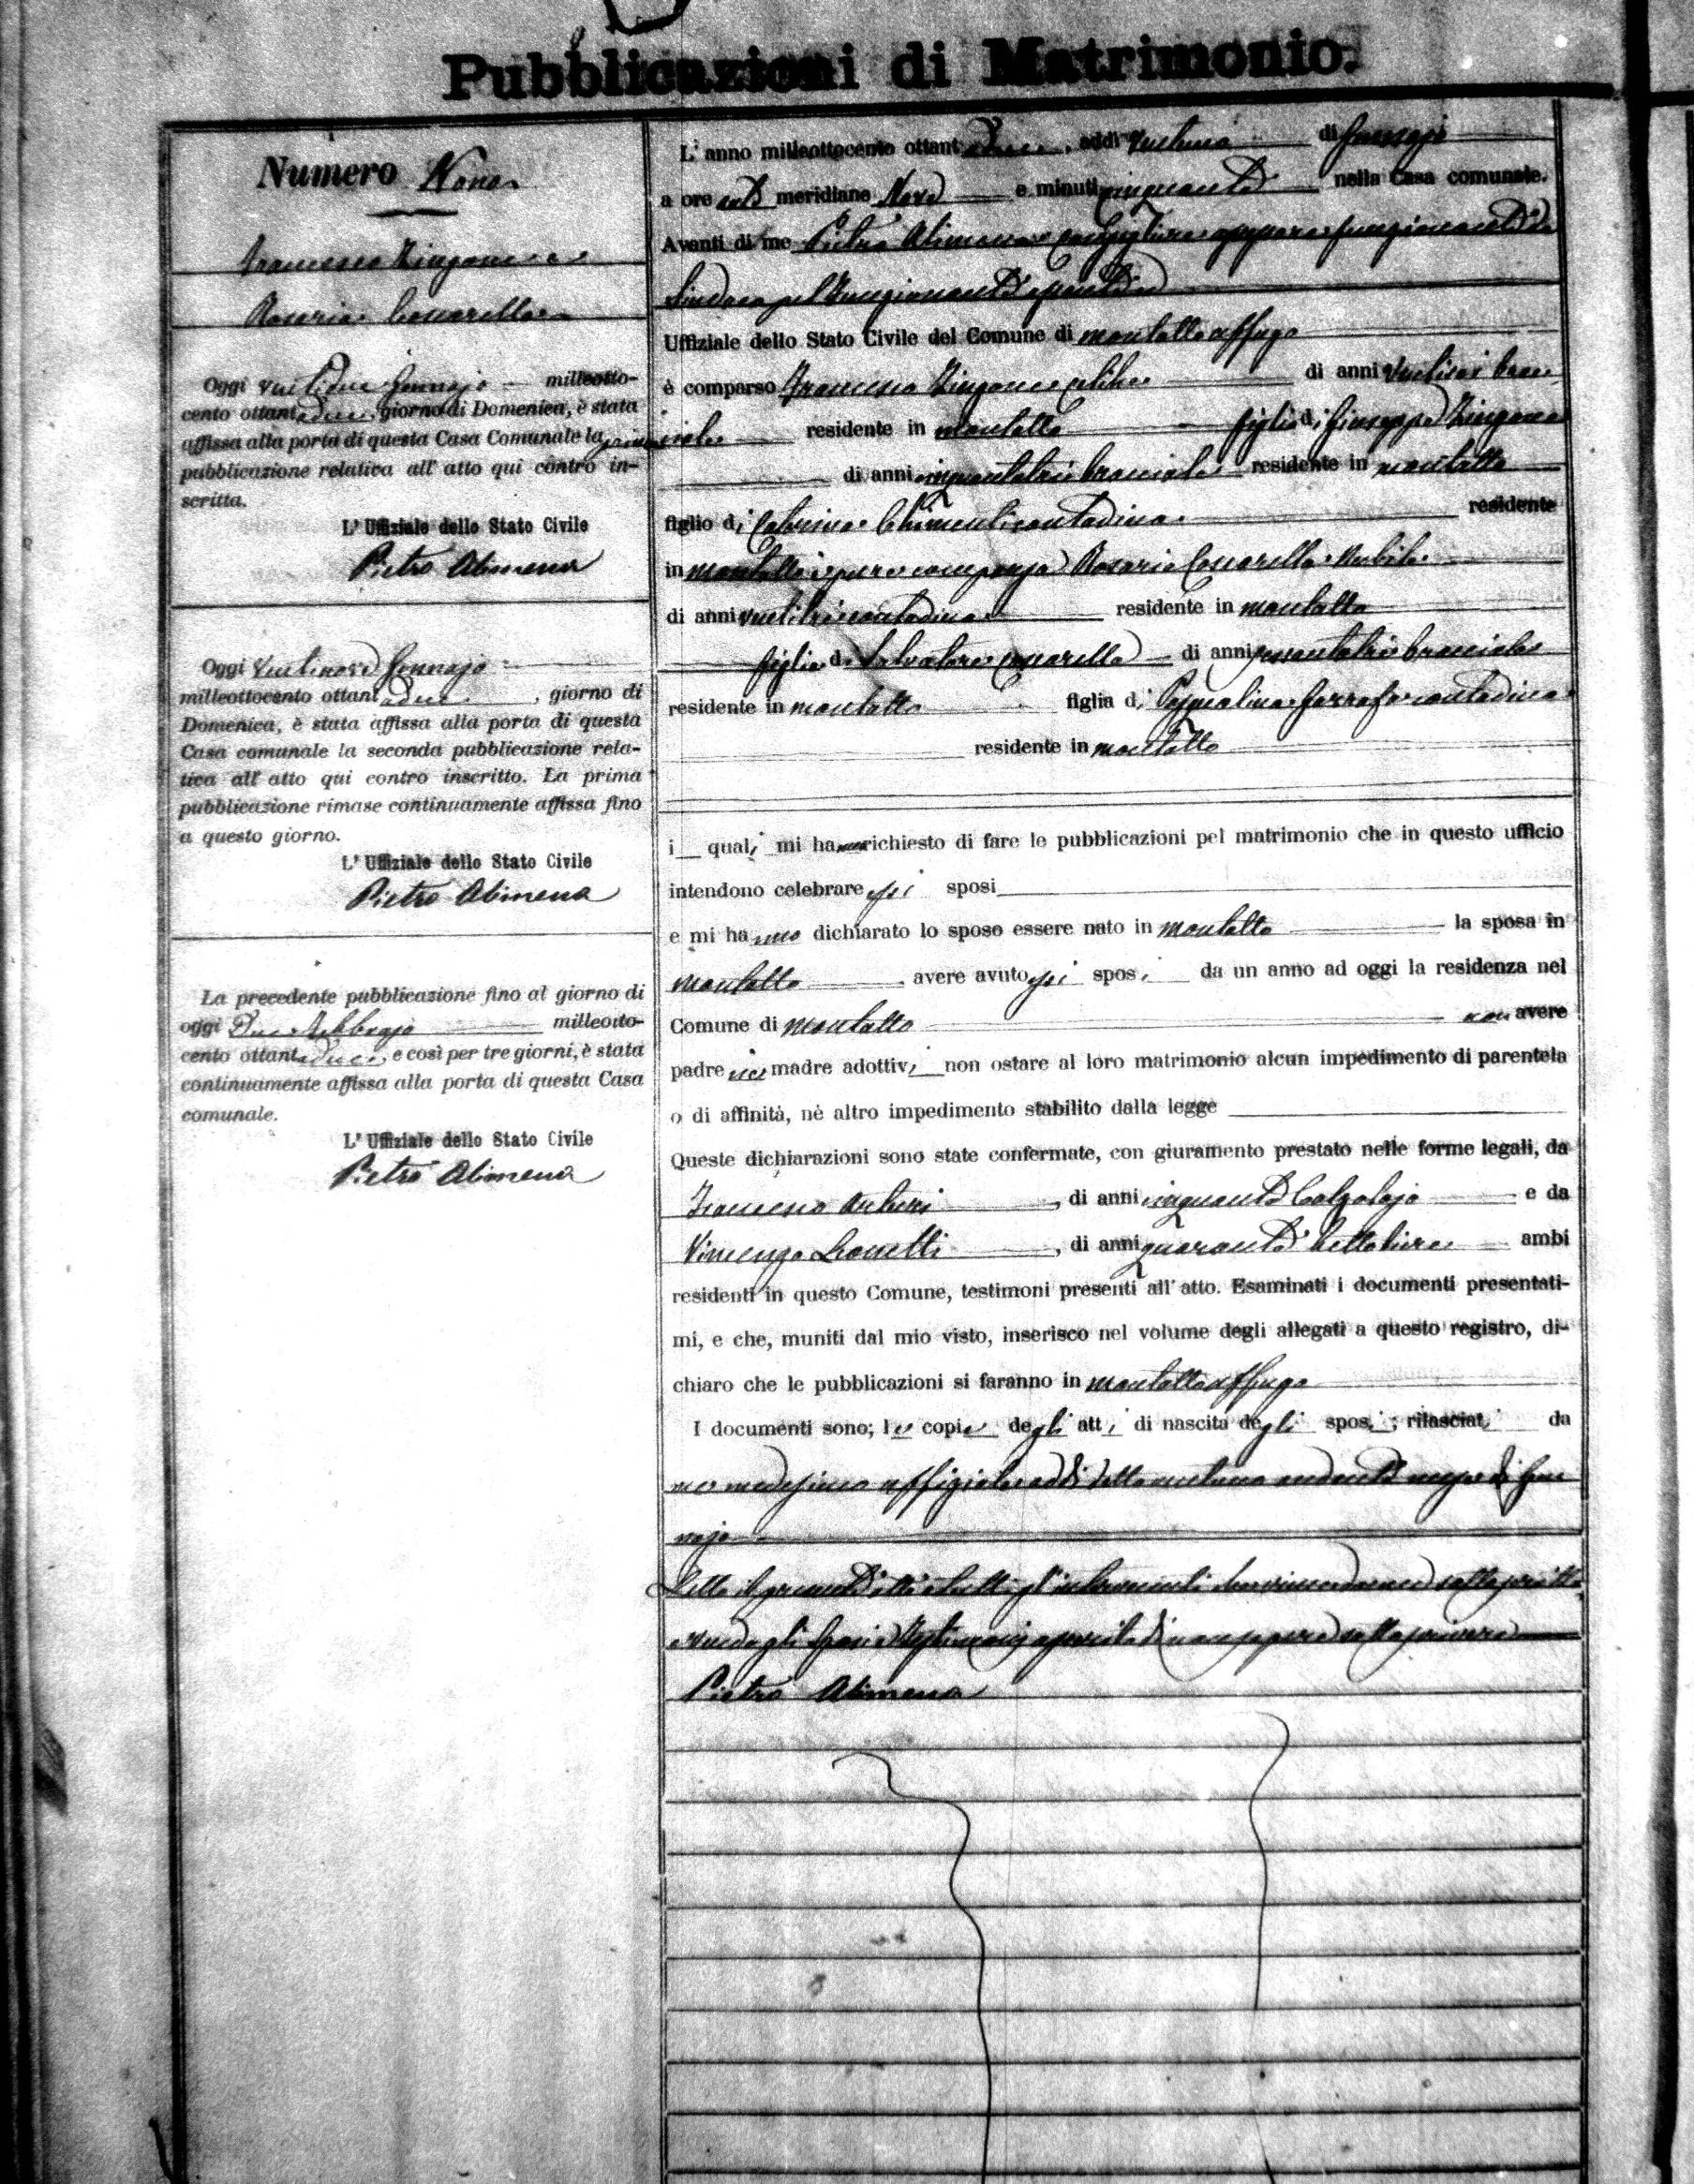 Pubblicazioni di Matrimonio.
Numero Nono
Francesco Zingone e
Rosaria Cosarella
Oggi ventidue Gennajo milleotto-
cento ottantadue, giorno di Domenica, è stata
affissa alla porta di questa Casa Comunale la prima
pubblicazione relativa all' atto qui contro in-
scritta.
L' Uffiziale dello Stato Civile
Pietro Alimena
Oggi ventinove Gennajo
milleottocento ottantadue, giorno di
Domenica, è stata affissa alla porta di questa
Casa comunale la seconda pubblicazione rela-
tiva all' atto qui contro inscritto. La prima
pubblicazione rimase continuamente affissa fino
a questo giorno.
L' Uffiziale dello Stato Civile
Pietro Alimena
La precedente pubblicazione fino al giorno di
oggi Due Febbrajo milleotto-
cento ottantadue, e così per tre giorni, è stata
continuamente affissa alla porta di questa Casa
comunale.
L' Uffiziale dello Stato Civile
Pietro Alimena
L' anno milleottocento ottantadue, addì ventuno di Gennajo
a ore anti meridiane Nove e minuti cinquanta nella Casa comunale.
Avanti di me Pietro Alimena Consigliere funzionante da
Sindaco pel funzionante
Uffiziale dello Stato Civile del Comune di Montalto Uffugo
è comparso Francesco Zingone celibe di anni ventisei brac
ciale residente in Montalto figlio di Giuseppe Zingone
di anni cinquantatrè bracciale residente in Montalto
figlio di Chimenti contadina residente
in Montalto è pure comparsa Rosaria Cosarella Nubile
di anni ventitrè contadina residente in Montalto
figlia di Salvatore Cosarella di anni bracciale
residente in Montalto figlia di Pasqualina contadina
residente in Montalto
i quali mi hanno richiesto di fare le pubblicazioni pel matrimonio che in questo ufficio
intendono celebrare essi sposi
e mi hanno dichiarato lo sposo essere nato in Montalto la sposa in
Montalto avere avuto essi sposi da un anno ad oggi la residenza nel
Comune di Montalto non avere
padre nè madre adottivi non ostare al loro matrimonio alcun impedimento di parentela
o di affinità, nè altro impedimento stabilito dalla legge
Queste dichiarazioni sono state confermate, con giuramento prestato nelle forme legali, da
Francesco di anni cinquanta Calzolajo e da
Vincenzo Leonetti, di anni quaranta ambi
residenti in questo Comune, testimoni presenti all' atto. Esaminati i documenti presentati-
mi, e che, muniti dal mio visto, inserisco nel volume degli allegati a questo registro, di-
chiaro che le pubblicazioni si faranno in Montalto Uffugo
I documenti sono; le copie degli atti di nascita degli sposi; rilasciati da
me medesimo uffiziale addì detto ventuno andante mese di Gen
najo
Letto il presente atto a tutti gl'intervenuti da me sottoscritto
e non dagli sposi e Testimonj di non sapere sottoscrivere
Pietro Alimena